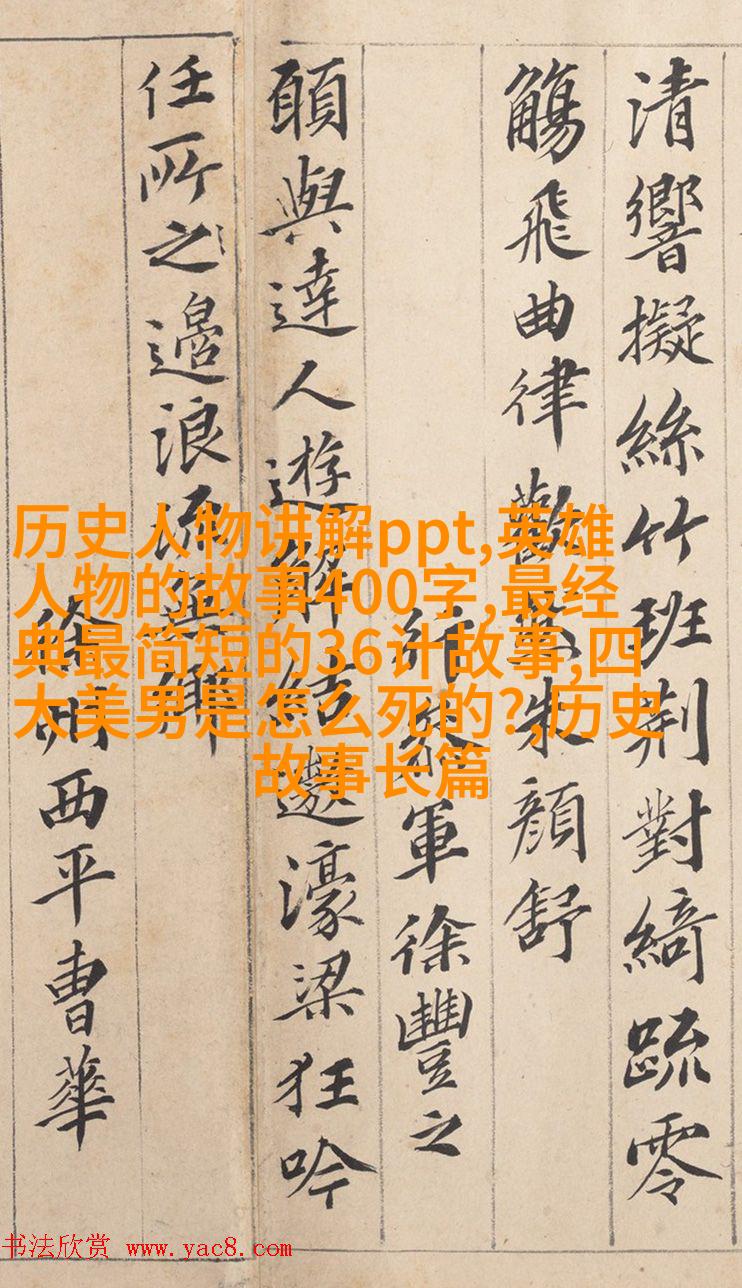 清響擬絲竹班荆對綺疏零
觴飛曲律歡朱顏舒
參軍徐豐之
願與達人遊解結遨濠梁狂吟
任所之邉浪
徐州西平曹華
历史人物讲解ppt,英雄
人物的故事400字,最经
典最简短的36计故事,四
大美男是怎么死的?,历史
故事长篇
书法欣赏 www.yac8.com